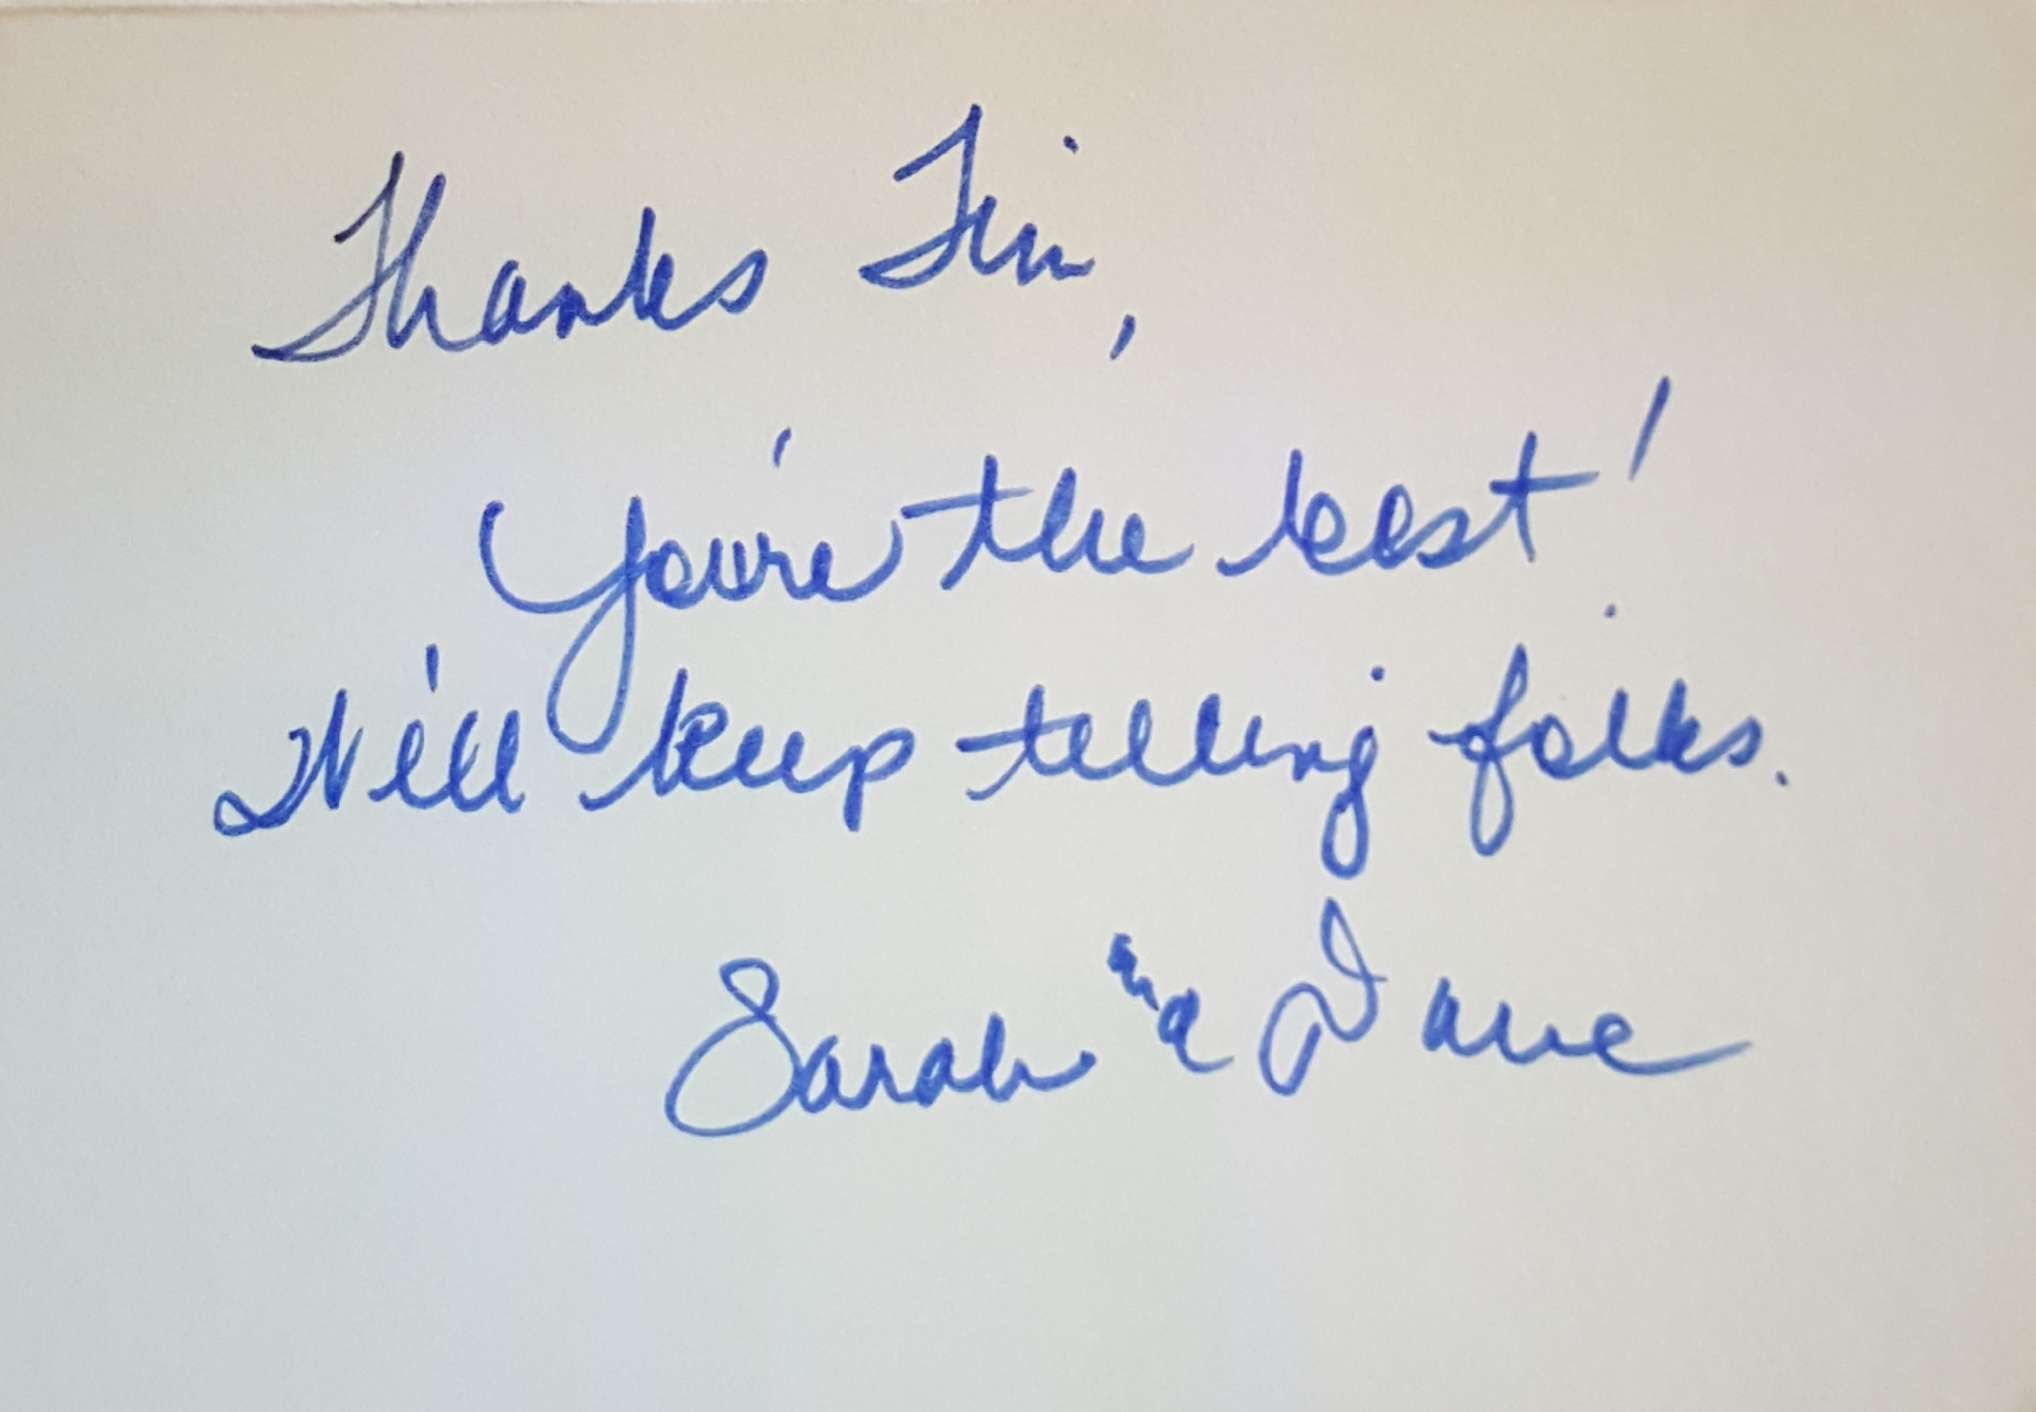 Thanks Tim,
You're the best!
We'll keep telling folks.
Sarah and Dave